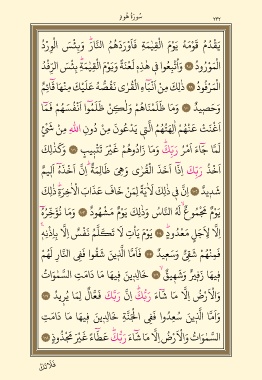 سُورَةُ هُودٍ ٢٣٢
يَقْدُمُ قَوْمَهُ يَوْمَ الْقِيٰمَةِ فَاَوْرَدَهُمُ النَّارَ وَبِئْسَ الْوِرْدُ
الْمَوْرُودُ ﴿٩٨﴾ وَاُتْبِعُوا فِي هٰذِهِ لَعْنَةً وَيَوْمَ الْقِيٰمَةِ بِئْسَ الرِّفْدُ
الْمَرْفُودُ ﴿٩٩﴾ ذٰلِكَ مِنْ اَنْبَاءِ الْقُرٰى نَقُصُّهُ عَلَيْكَ مِنْهَا قَائِمٌ
وَحَصِيدٌ ﴿١٠٠﴾ وَمَا ظَلَمْنَاهُمْ وَلٰكِنْ ظَلَمُوا اَنْفُسَهُمْ فَمَا
اَغْنَتْ عَنْهُمْ اٰلِهَتُهُمُ الَّتِي يَدْعُونَ مِنْ دُونِ اللّٰهِ مِنْ شَيْءٍ
لَمَّا جَاءَ اَمْرُ رَبِّكَ وَمَا زَادُوهُمْ غَيْرَ تَتْبِيبٍ ﴿١٠١﴾ وَكَذٰلِكَ
اَخْذُ رَبِّكَ اِذَا اَخَذَ الْقُرٰى وَهِيَ ظَالِمَةٌ اِنَّ اَخْذَهُ اَلِيمٌ
شَدِيدٌ ﴿١٠٢﴾ اِنَّ فِي ذٰلِكَ لَاٰيَةً لِمَنْ خَافَ عَذَابَ الْاٰخِرَةِ ذٰلِكَ
يَوْمٌ مَجْمُوعٌ لَهُ النَّاسُ وَذٰلِكَ يَوْمٌ مَشْهُودٌ ﴿١٠٣﴾ وَمَا نُؤَخِّرُهُ
اِلَّا لِاَجَلٍ مَعْدُودٍ ﴿١٠٤﴾ يَوْمَ يَاْتِ لَا تَكَلَّمُ نَفْسٌ اِلَّا بِاِذْنِهِ
فَمِنْهُمْ شَقِيٌّ وَسَعِيدٌ ﴿١٠٥﴾ فَاَمَّا الَّذِينَ شَقُوا فَفِي النَّارِ لَهُمْ
فِيهَا زَفِيرٌ وَشَهِيقٌ ﴿١٠٦﴾ خَالِدِينَ فِيهَا مَا دَامَتِ السَّمٰوَاتُ
وَالْاَرْضُ اِلَّا مَا شَاءَ رَبُّكَ اِنَّ رَبَّكَ فَعَّالٌ لِمَا يُرِيدُ ﴿١٠٧﴾
وَاَمَّا الَّذِينَ سُعِدُوا فَفِي الْجَنَّةِ خَالِدِينَ فِيهَا مَا دَامَتِ
السَّمٰوَاتُ وَالْاَرْضُ اِلَّا مَا شَاءَ رَبُّكَ عَطَاءً غَيْرَ مَجْذُوذٍ ﴿١٠٨﴾
فَلَا تَكُ